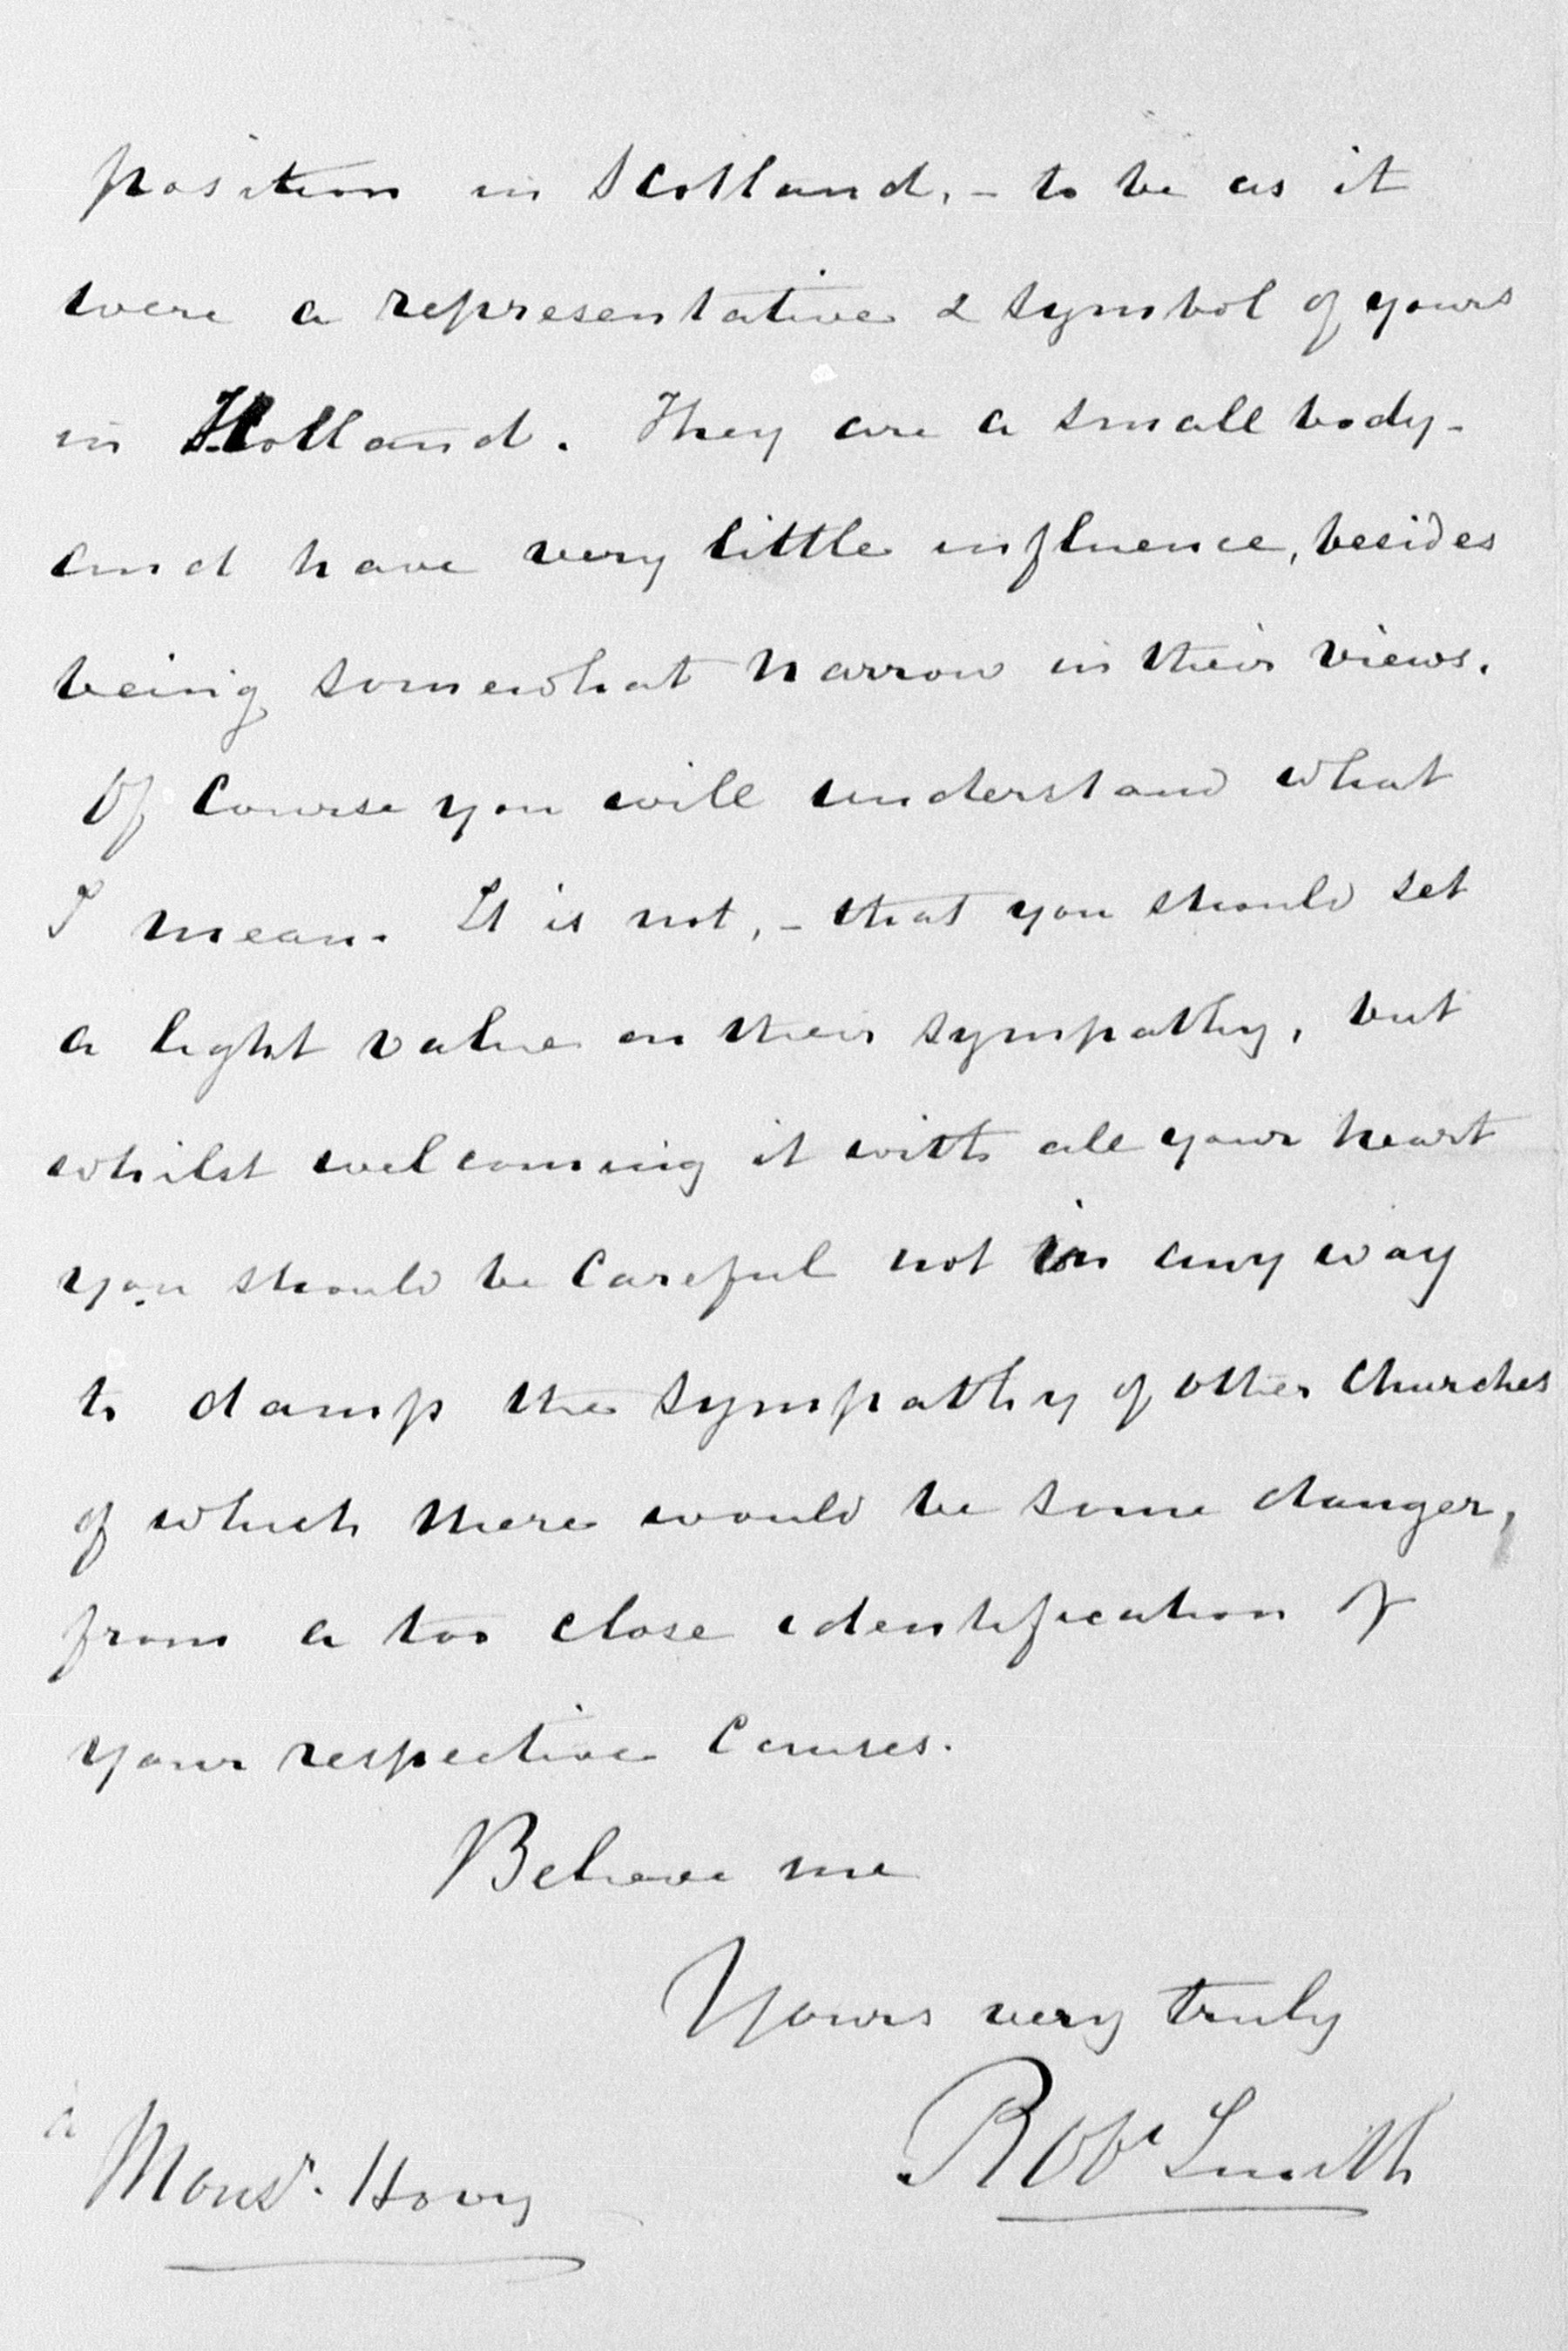 position in Scotland, - to be as it
were a representative & symbol of yours
in Holland. They are a small body -
and have very little influence, besides
being somewhat narrow in their views.
Of course you will understand what
I mean. It is not, - that you should set
a light value on their sympathy, but
whilst welcoming it with all your heart
you should be careful not in any way
to damp the sympathy of other Churches
of which there would be some danger,
from a too close identification of
your respective Causes.
Believe me
Yours very truly
Robt Smith
à Monsr. Hovy